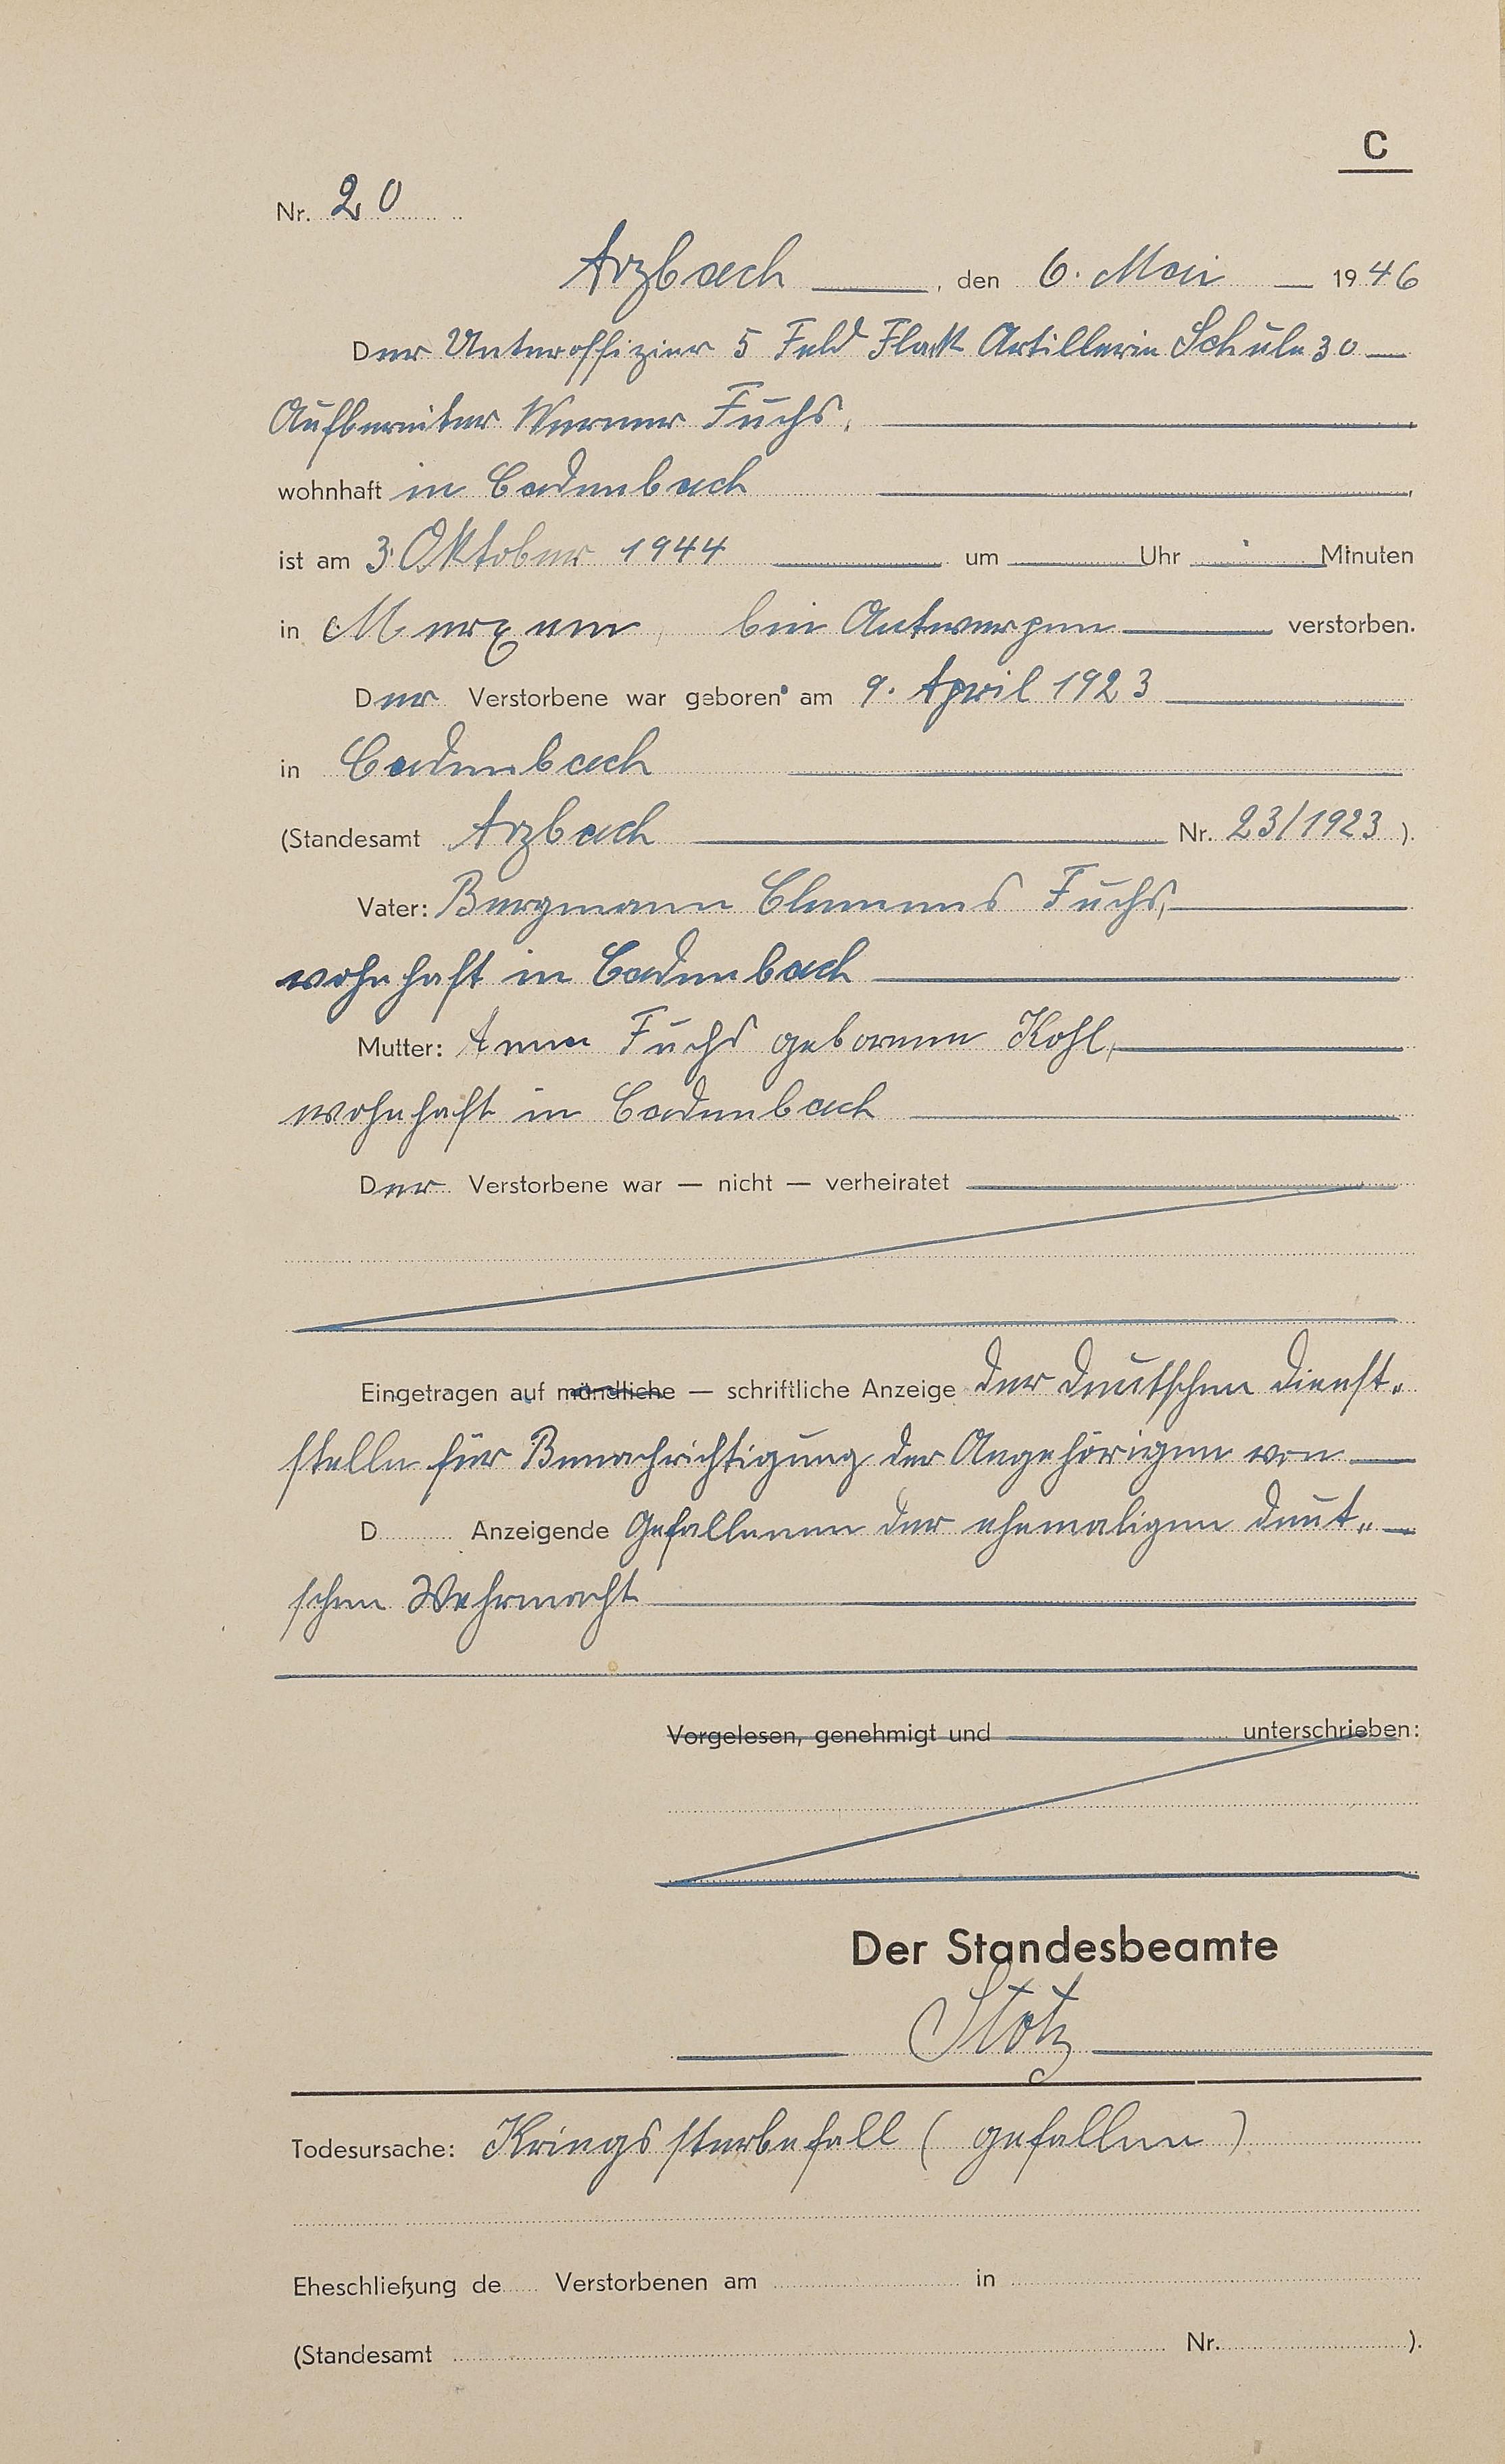 C
Nr. 20
Arzbach, den 6. Mai 1946
Der Unteroffizier 5 Feld Flak Artillerie Schule 30
Aufbereiter Werner Fuchs,
wohnhaft in Cadenbach
ist am 3. Oktober 1944 um Uhr Minuten
in Merxem, bei Antwerpen verstorben.
Der Verstorbene war geboren am 9. April 1923
in Cadenbach
(Standesamt Arzbach Nr. 23/1923 ).
Vater: Bergmann Clemens Fuchs,
wohnhaft in Cadenbach
Mutter: Anna Fuchs geborene Kohl,
wohnhaft in Cadenbach
Der Verstorbene war — nicht — verheiratet
Eingetragen auf mündliche — schriftliche Anzeige der deutschen Dienst-
stelle für Benachrichtigung der Angehörigen von
D Anzeigende Gefallenen der ehemaligen deut-
schen Wehrmacht
Vorgelesen, genehmigt und unterschrieben:
Der Standesbeamte
Stotz
Todesursache: Kriegssterbefall (gefallen)
Eheschließung de Verstorbenen am in
(Standesamt Nr. ).